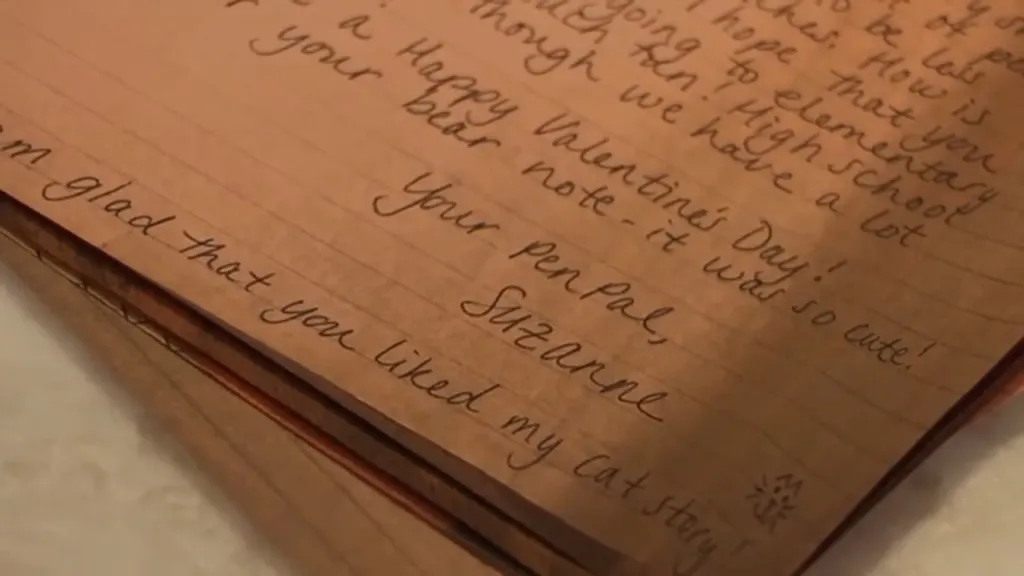 of
be less
How is
hope that you
going to elementary
much fun! High school
though we have a lot
a Happy Valentine's Day!
your bear note- it was so cute!
Your pen pal,
Suzanne
glad that you liked my cat story!